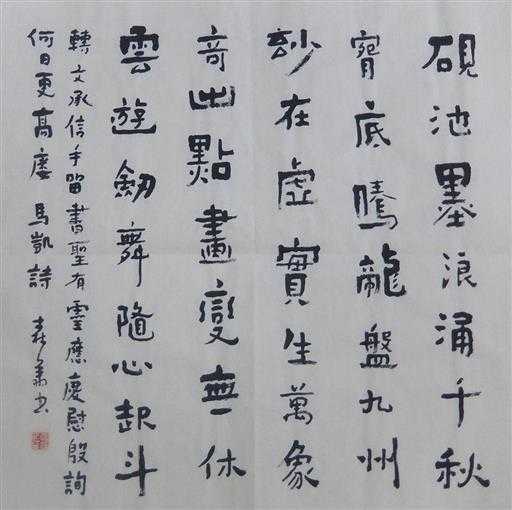 硯池墨浪涌千秋
窅底騰龍盤九州
妙在虛實生萬象
奇出點畫變無休
雲遊劍舞隨心起斗
轉文承信手留書聖有靈應慶慰殷詢
何日更高廔馬凱詩 春華書